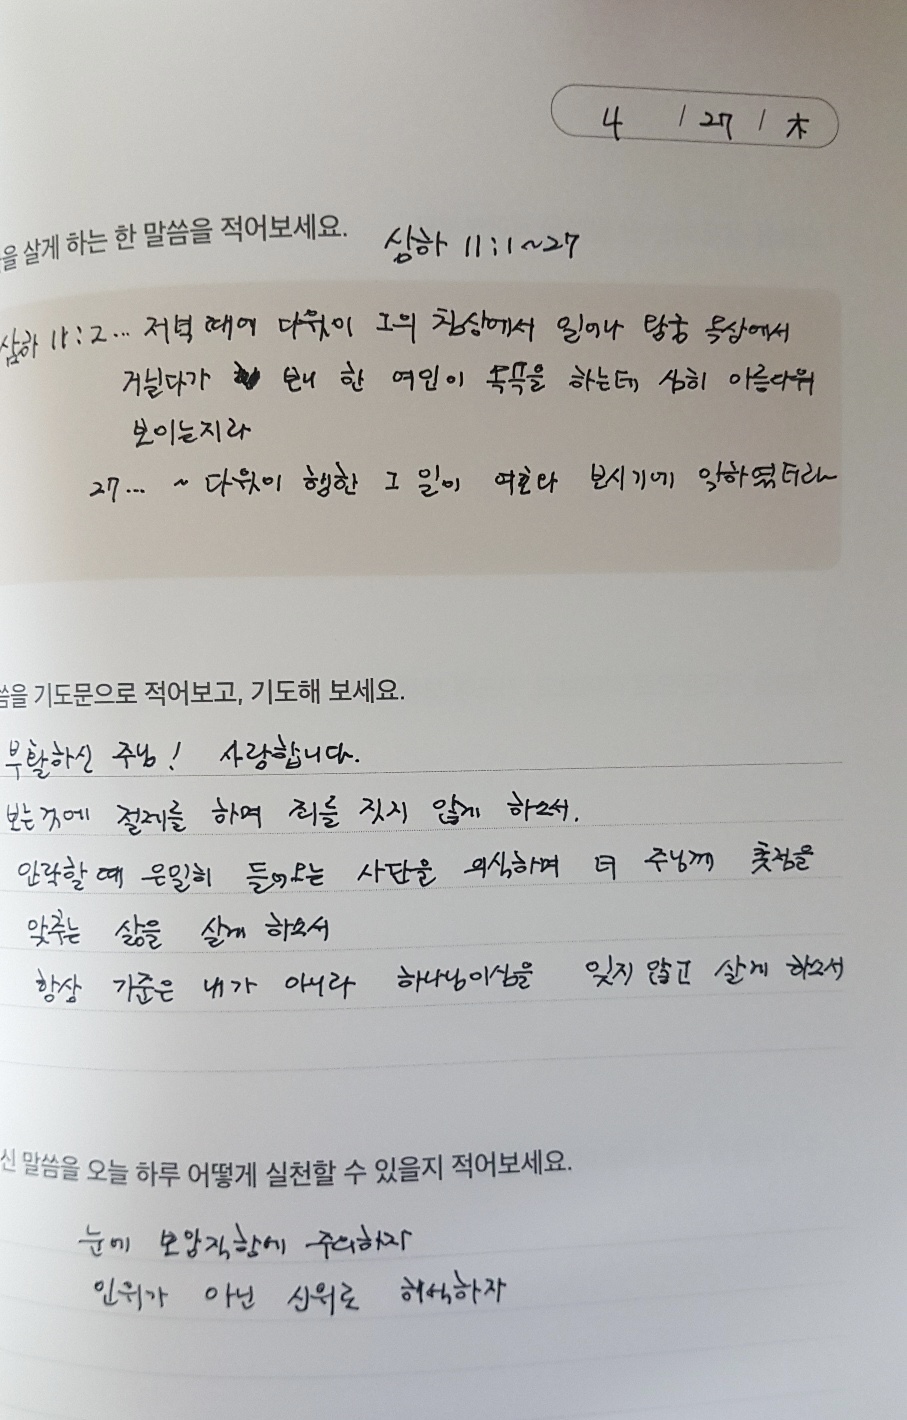 4 / 27 / 木
을 살게 하는 한 말씀을 적어보세요. 삼하 11:1~27
삼하 11:2... 저녁 때에 다윗이 그의 침상에서 일어나 왕궁 옥상에서
거닐다가 보니 한 여인이 목욕을 하는데 심히 아름다워
보이는지라
27... ~ 다윗이 행한 그 일이 여호와 보시기에 악하였더라
씀을 기도문으로 적어보고, 기도해 보세요.
부활하신 주님! 사랑합니다.
보는것에 절제를 하며 죄를 짓지 않게 하소서.
안락할 때 은밀히 들어오는 사단을 의식하며 더 주님께 촛점을
맞추는 삶을 살게 하소서
항상 기준은 내가 아니라 하나님이심을 잊지 않고 살게 하소서
신 말씀을 오늘 하루 어떻게 실천할 수 있을지 적어보세요.
눈에 보암직함에 주의하자
인위가 아닌 신위로 해석하자